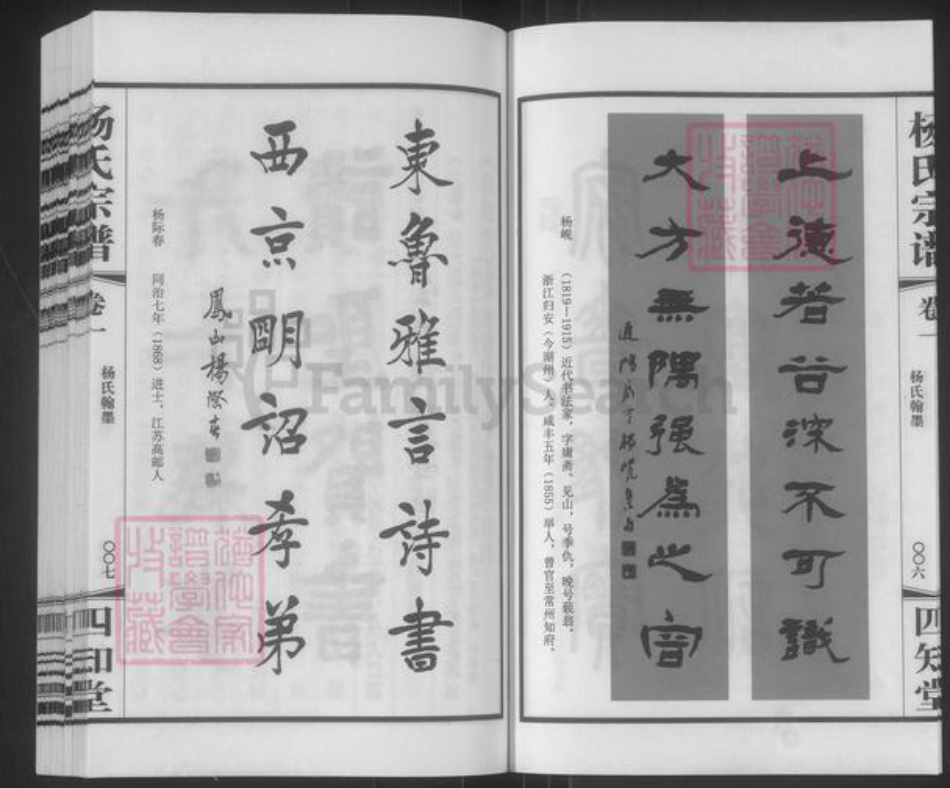 杨氏宗谱
卷一
杨氏翰墨
〇〇六
四知堂
上德若谷深不可識
大方無隅强為之容
杨岘
(1819—1915)近代书法家,字庸斋、见山,号季仇,晚号藐翁,
浙江归安(今湖州)人。咸丰五年(1855)举人,曾官至常州知府。
東魯雅言詩書
西京明詔孝弟
鳳山楊際春
杨际春 同治七年(1868)进士,江苏高邮人
杨氏宗谱
卷一
杨氏翰墨
〇〇七
四知堂
FamilySearch